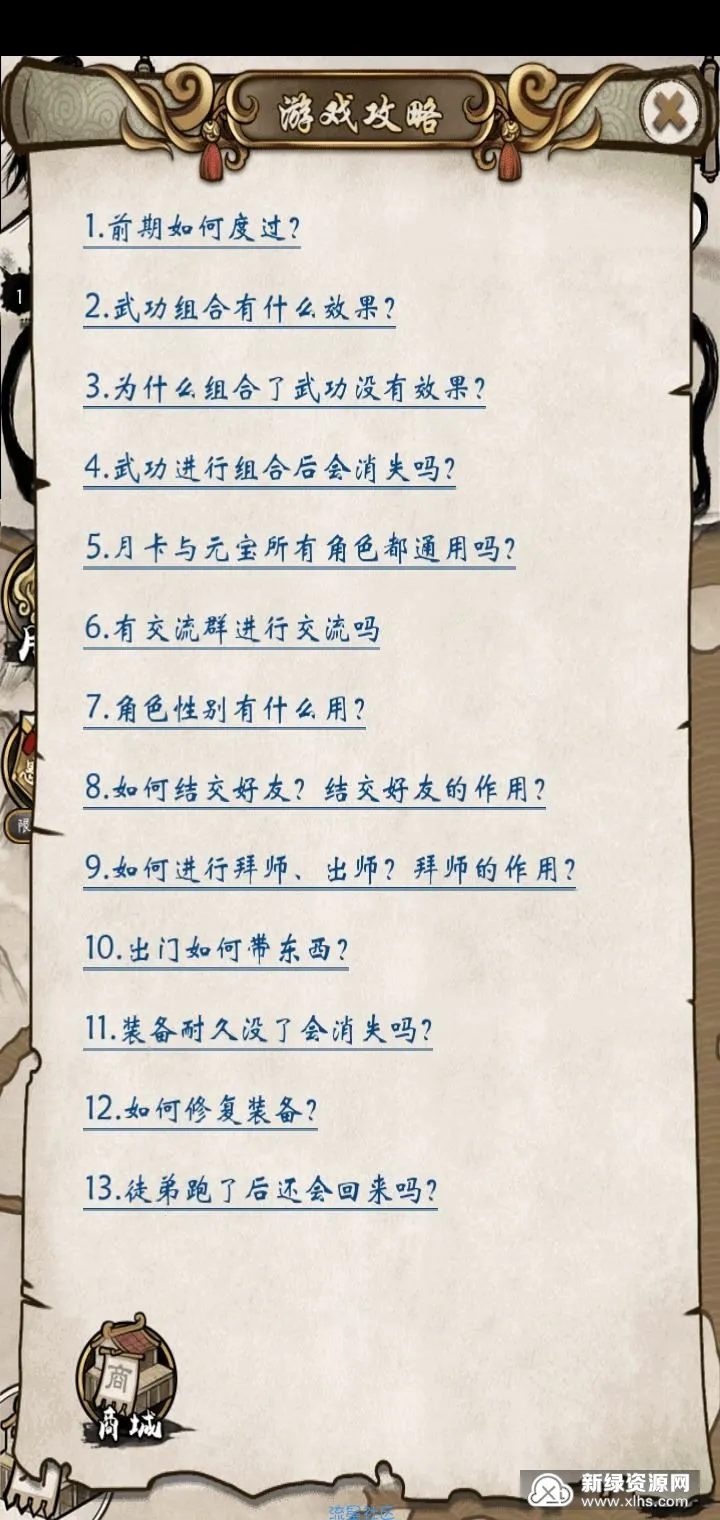 游戏攻略
1.前期如何度过?
1
2.武功组合有什么效果?
3.为什么组合了武功没有效果?
4.武功进行组合后会消失吗?
5.月卡与元宝所有角色都通用吗?
6.有交流群进行交流吗
7.角色性别有什么用?
8.如何结交好友? 结交好友的作用?
限
9.如何进行拜师、出师? 拜师的作用?
10.出门如何带东西?
11.装备耐久没了会消失吗?
12.如何修复装备?
13.徒弟跑了后还会回来吗?
商
商城
新绿资源网
www.xlhs.com